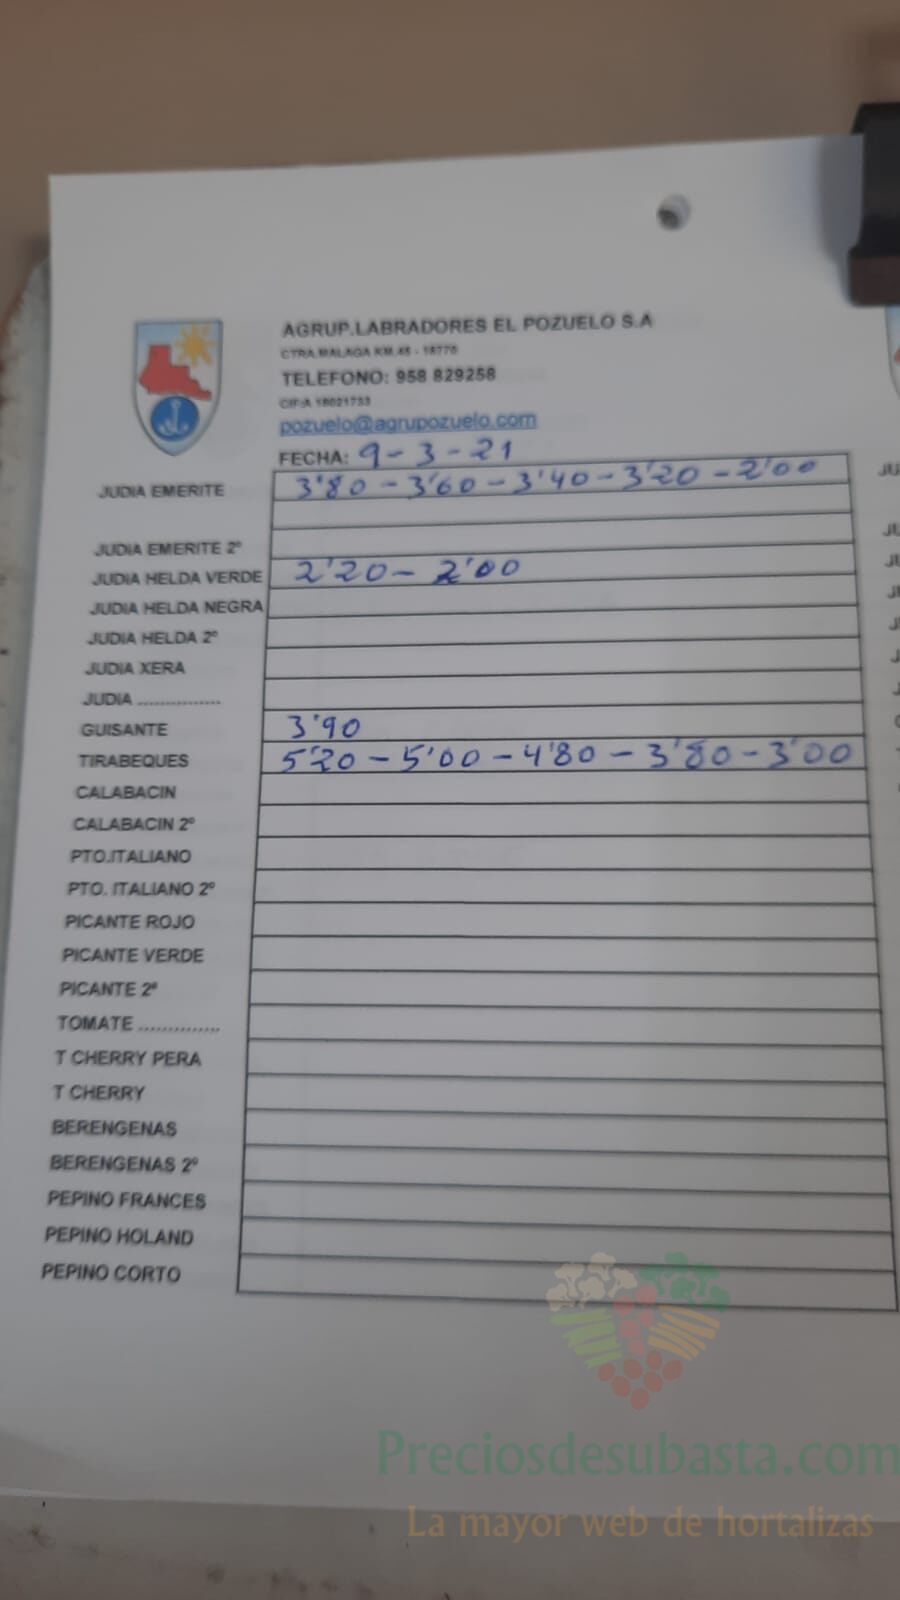 AGRUP.LABRADORES EL POZUELO S.A
CTRA.MALAGA KM.45 - 18770
TELEFONO: 958 829258
CIF:A 18021733
pozuelo@agrupozuelo.com
FECHA: 9-3-21
JUDIA EMERITE 3'80 - 3'60 - 3'40 - 3'20 - 2'00
JUDIA EMERITE 2º
JUDIA HELDA VERDE 2'20 - 2'00
JUDIA HELDA NEGRA
JUDIA HELDA 2º
JUDIA XERA
JUDIA ................
GUISANTE 3'90
TIRABEQUES 5'20 - 5'00 - 4'80 - 3'80 - 3'00
CALABACIN
CALABACIN 2º
PTO.ITALIANO
PTO. ITALIANO 2º
PICANTE ROJO
PICANTE VERDE
PICANTE 2º
TOMATE ...............
T CHERRY PERA
T CHERRY
BERENGENAS
BERENGENAS 2º
PEPINO FRANCES
PEPINO HOLAND
PEPINO CORTO
Preciosdesubasta.com
La mayor web de hortalizas